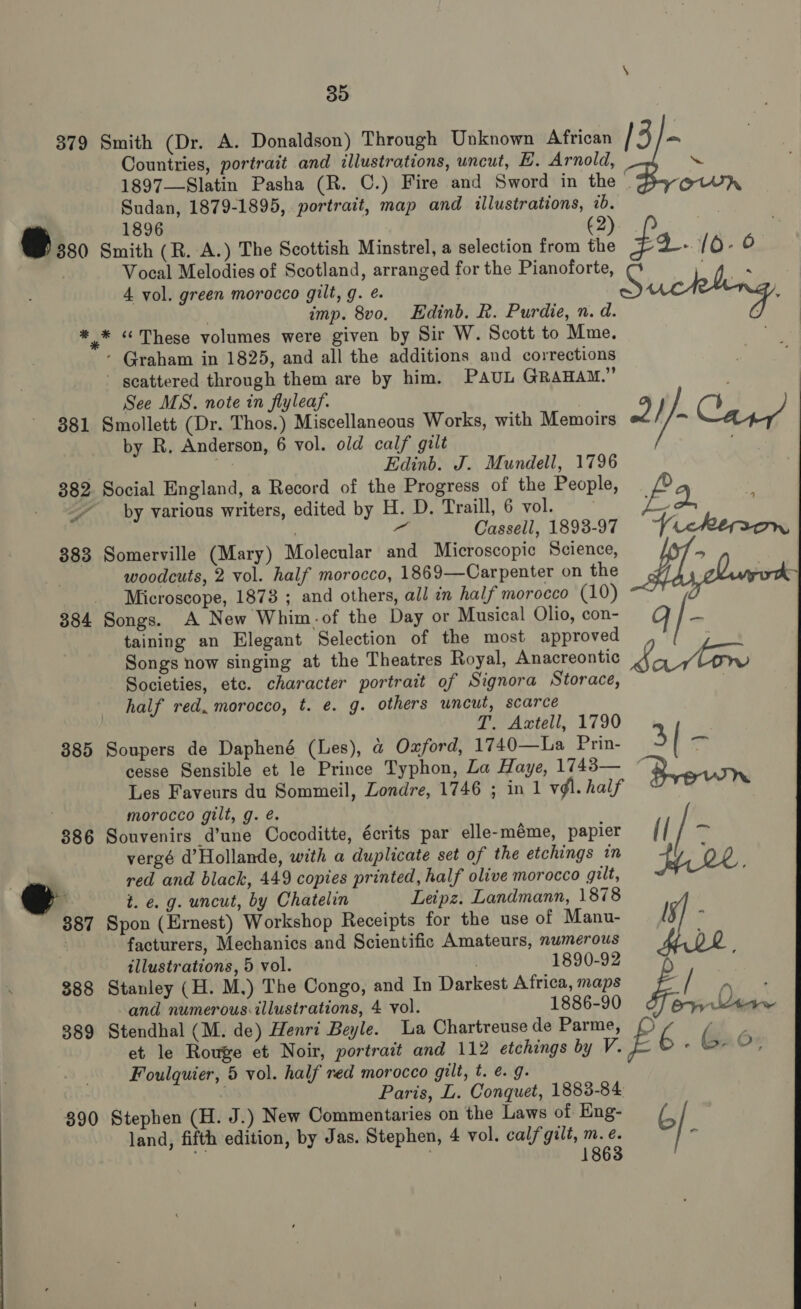 35
379 Smith (Dr. A. Donaldson) Through Unknown African 13/-
Countries, portrait and illustrations, uncut, E. Arnold,
1897—Slatin Pasha (R. C.) Fire and Sword in the Brown
Sudan, 1879-1895, portrait, map and illustrations, ib.
1896 (2)
380 Smith (R. A.) The Scottish Minstrel, a selection from the £2-16-0
Vocal Melodies of Scotland, arranged for the Pianoforte,
4 vol. green morocco gilt, g. e. Suckling.
imp. 8vo. Edinb. R. Purdie, n. d.
*** “These volumes were given by Sir W. Scott to Mme.
Graham in 1825, and all the additions and corrections
scattered through them are by him. PAUL GRAHAM.”
See MS. note in flyleaf.
381 Smollett (Dr. Thos.) Miscellaneous Works, with Memoirs 21/-
by R. Anderson, 6 vol. old calf gilt
Edinb. J. Mundell, 1796
382 Social England, a Record of the Progress of the People,
by various writers, edited by H. D. Traill, 6 vol.
Cassell, 1893-97 Vickerson
383 Somerville (Mary) Molecular and Microscopic Science,
woodcuts, 2 vol. half morocco, 1869—Carpenter on the
Microscope, 1873 ; and others, all in half morocco (10)
384 Songs. A New Whim of the Day or Musical Olio, con- 9/-
taining an Elegant Selection of the most approved
Songs now singing at the Theatres Royal, Anacreontic
Societies, etc. character portrait of Signora Storace,
half red morocco, t. e. g. others uncut, scarce
T. Axtell, 1790
385 Soupers de Daphené (Les), à Oxford, 1740—La Prin- 3/-
cesse Sensible et le Prince Typhon, La Haye, 1743— Brown
Les Faveurs du Sommeil, Londre, 1746 ; in 1 vol. half
morocco gilt, g. e.
386 Souvenirs d’une Cocoditte, écrits par elle-même, papier 11/-
vergé d’Hollande, with a duplicate set of the etchings in Hill.
red and black, 449 copies printed, half olive morocco gilt,
t. e. g. uncut, by Chatelin Leipz. Landmann, 1878
387 Spon (Ernest) Workshop Receipts for the use of Manu- 18/-
facturers, Mechanics and Scientific Amateurs, numerous Hill.
illustrations, 5 vol. 1890-92
388 Stanley (H. M.) The Congo, and In Darkest Africa, maps
and numerous illustrations, 4 vol. 1886-90
389 Stendhal (M. de) Henri Beyle. La Chartreuse de Parme,
et le Rouge et Noir, portrait and 112 etchings by V. £6-6-0.
Foulquier, 5 vol. half red morocco gilt, t. e. g.
Paris, L. Conquet, 1883-84
390 Stephen (H. J.) New Commentaries on the Laws of Eng- 6/-
land, fifth edition, by Jas. Stephen, 4 vol. calf gilt, m. e.
1863